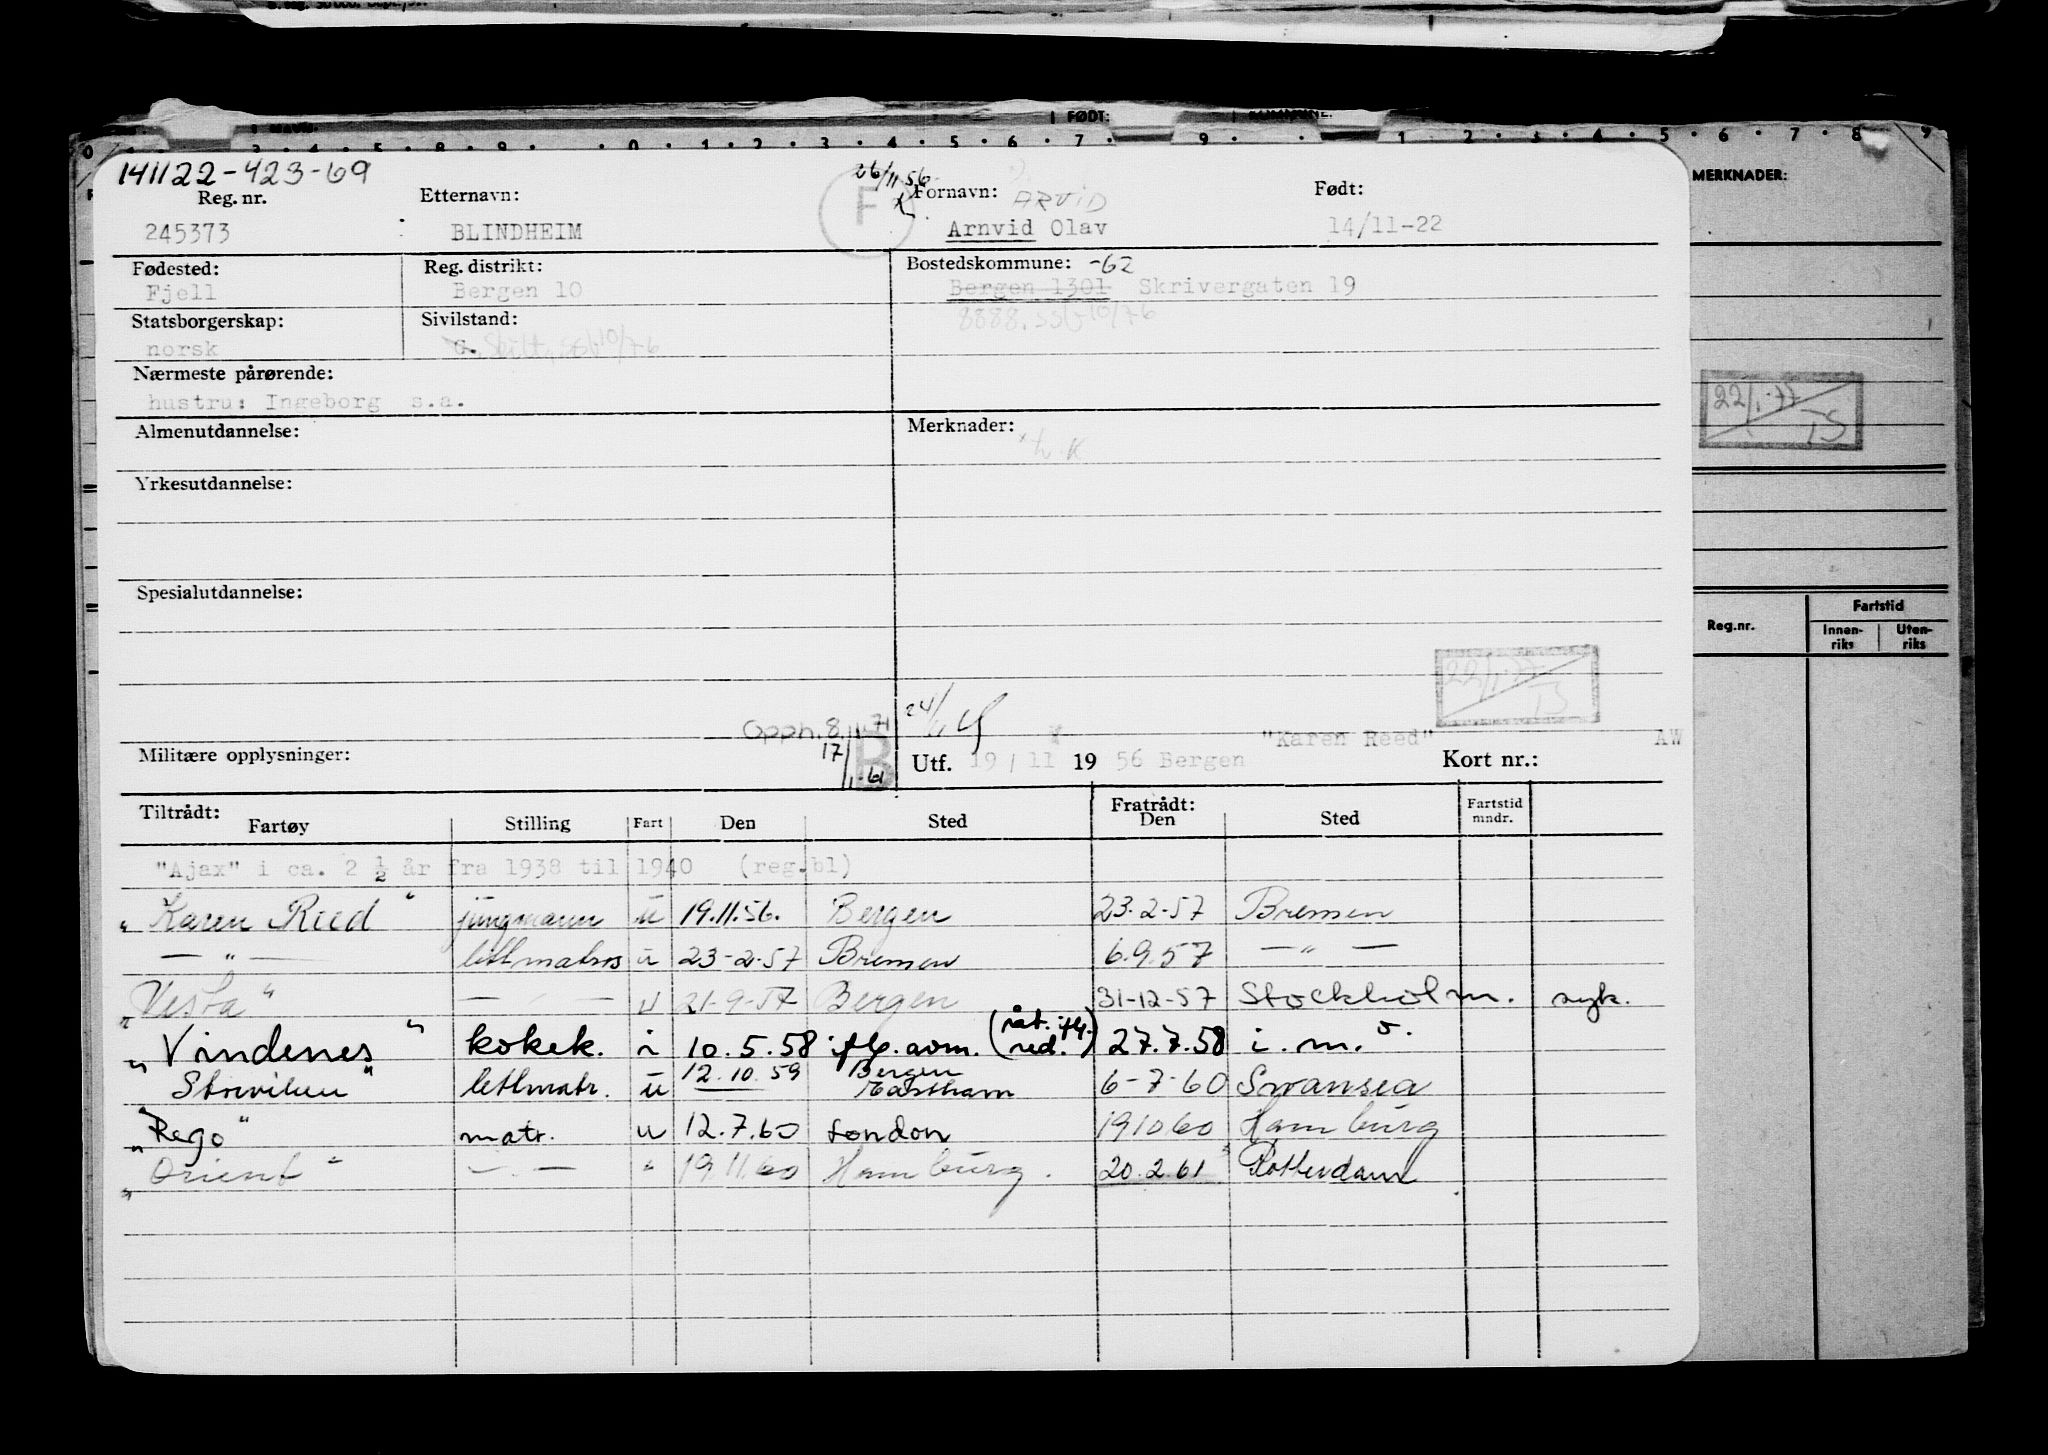 FØDT:
0 1 2 3 4 5 6 7 9 1 2 3 4 5 6 7 8 9
MERKNADER:
141122-423-69
26/11 56
Reg. nr. Etternavn: F Fornavn: ARVID Født:
245373 BLINDHEIM Arnvid Olav 14/11-22
Fødested: Reg. distrikt: Bostedskommune: -62
Fjell Bergen 10 Bergen 1301 Skrivergaten 19
Statsborgerskap: Sivilstand: 8888. 10/76
norsk G. Skilt, 10/76
Nærmeste pårørende:
hustru: Ingeborg s.a.
22/1-77
TS
Almenutdannelse: Merknader:
Yrkesutdannelse:
Spesialutdannelse:
Reg.nr. Fartstid
Innen-riks Uten-riks
22/1-77
TS
Opph. 8/1 71 24/
17/1-61 B
"Karen Reed" AW
Militære opplysninger: Utf. 19/11 1956 Bergen Kort nr.:
Tiltrådt: Fratrådt: Fartstid
Fartøy Stilling Fart Den Sted Den Sted mndr.
"Ajax" i ca. 2 ½ år fra 1938 til 1940 (reg.bl)
"Karen Reed" jungmann u 19.11.56. Bergen 23-2-57 Bremen
— " — lettmatros u 23-2-57 Bremen 6.9.57 — " —
"Vesta" — " — u 21-9-57 Bergen 31-12-57 Stockholm. syk.
"Vindenes" kokek. i 10.5.58 iflg. aom. (råt. iflg. red.) 27.7.58 i. m. o.
"Storviken" lettmatr. u 12.10.59 Bergen Eastham 6-7-60 Swansea
"Rego" matr. u 12.7.60 London 191060 Hamburg
"Orient" — " — " 19.11.60 Hamburg. 20.2.61 Rotterdam